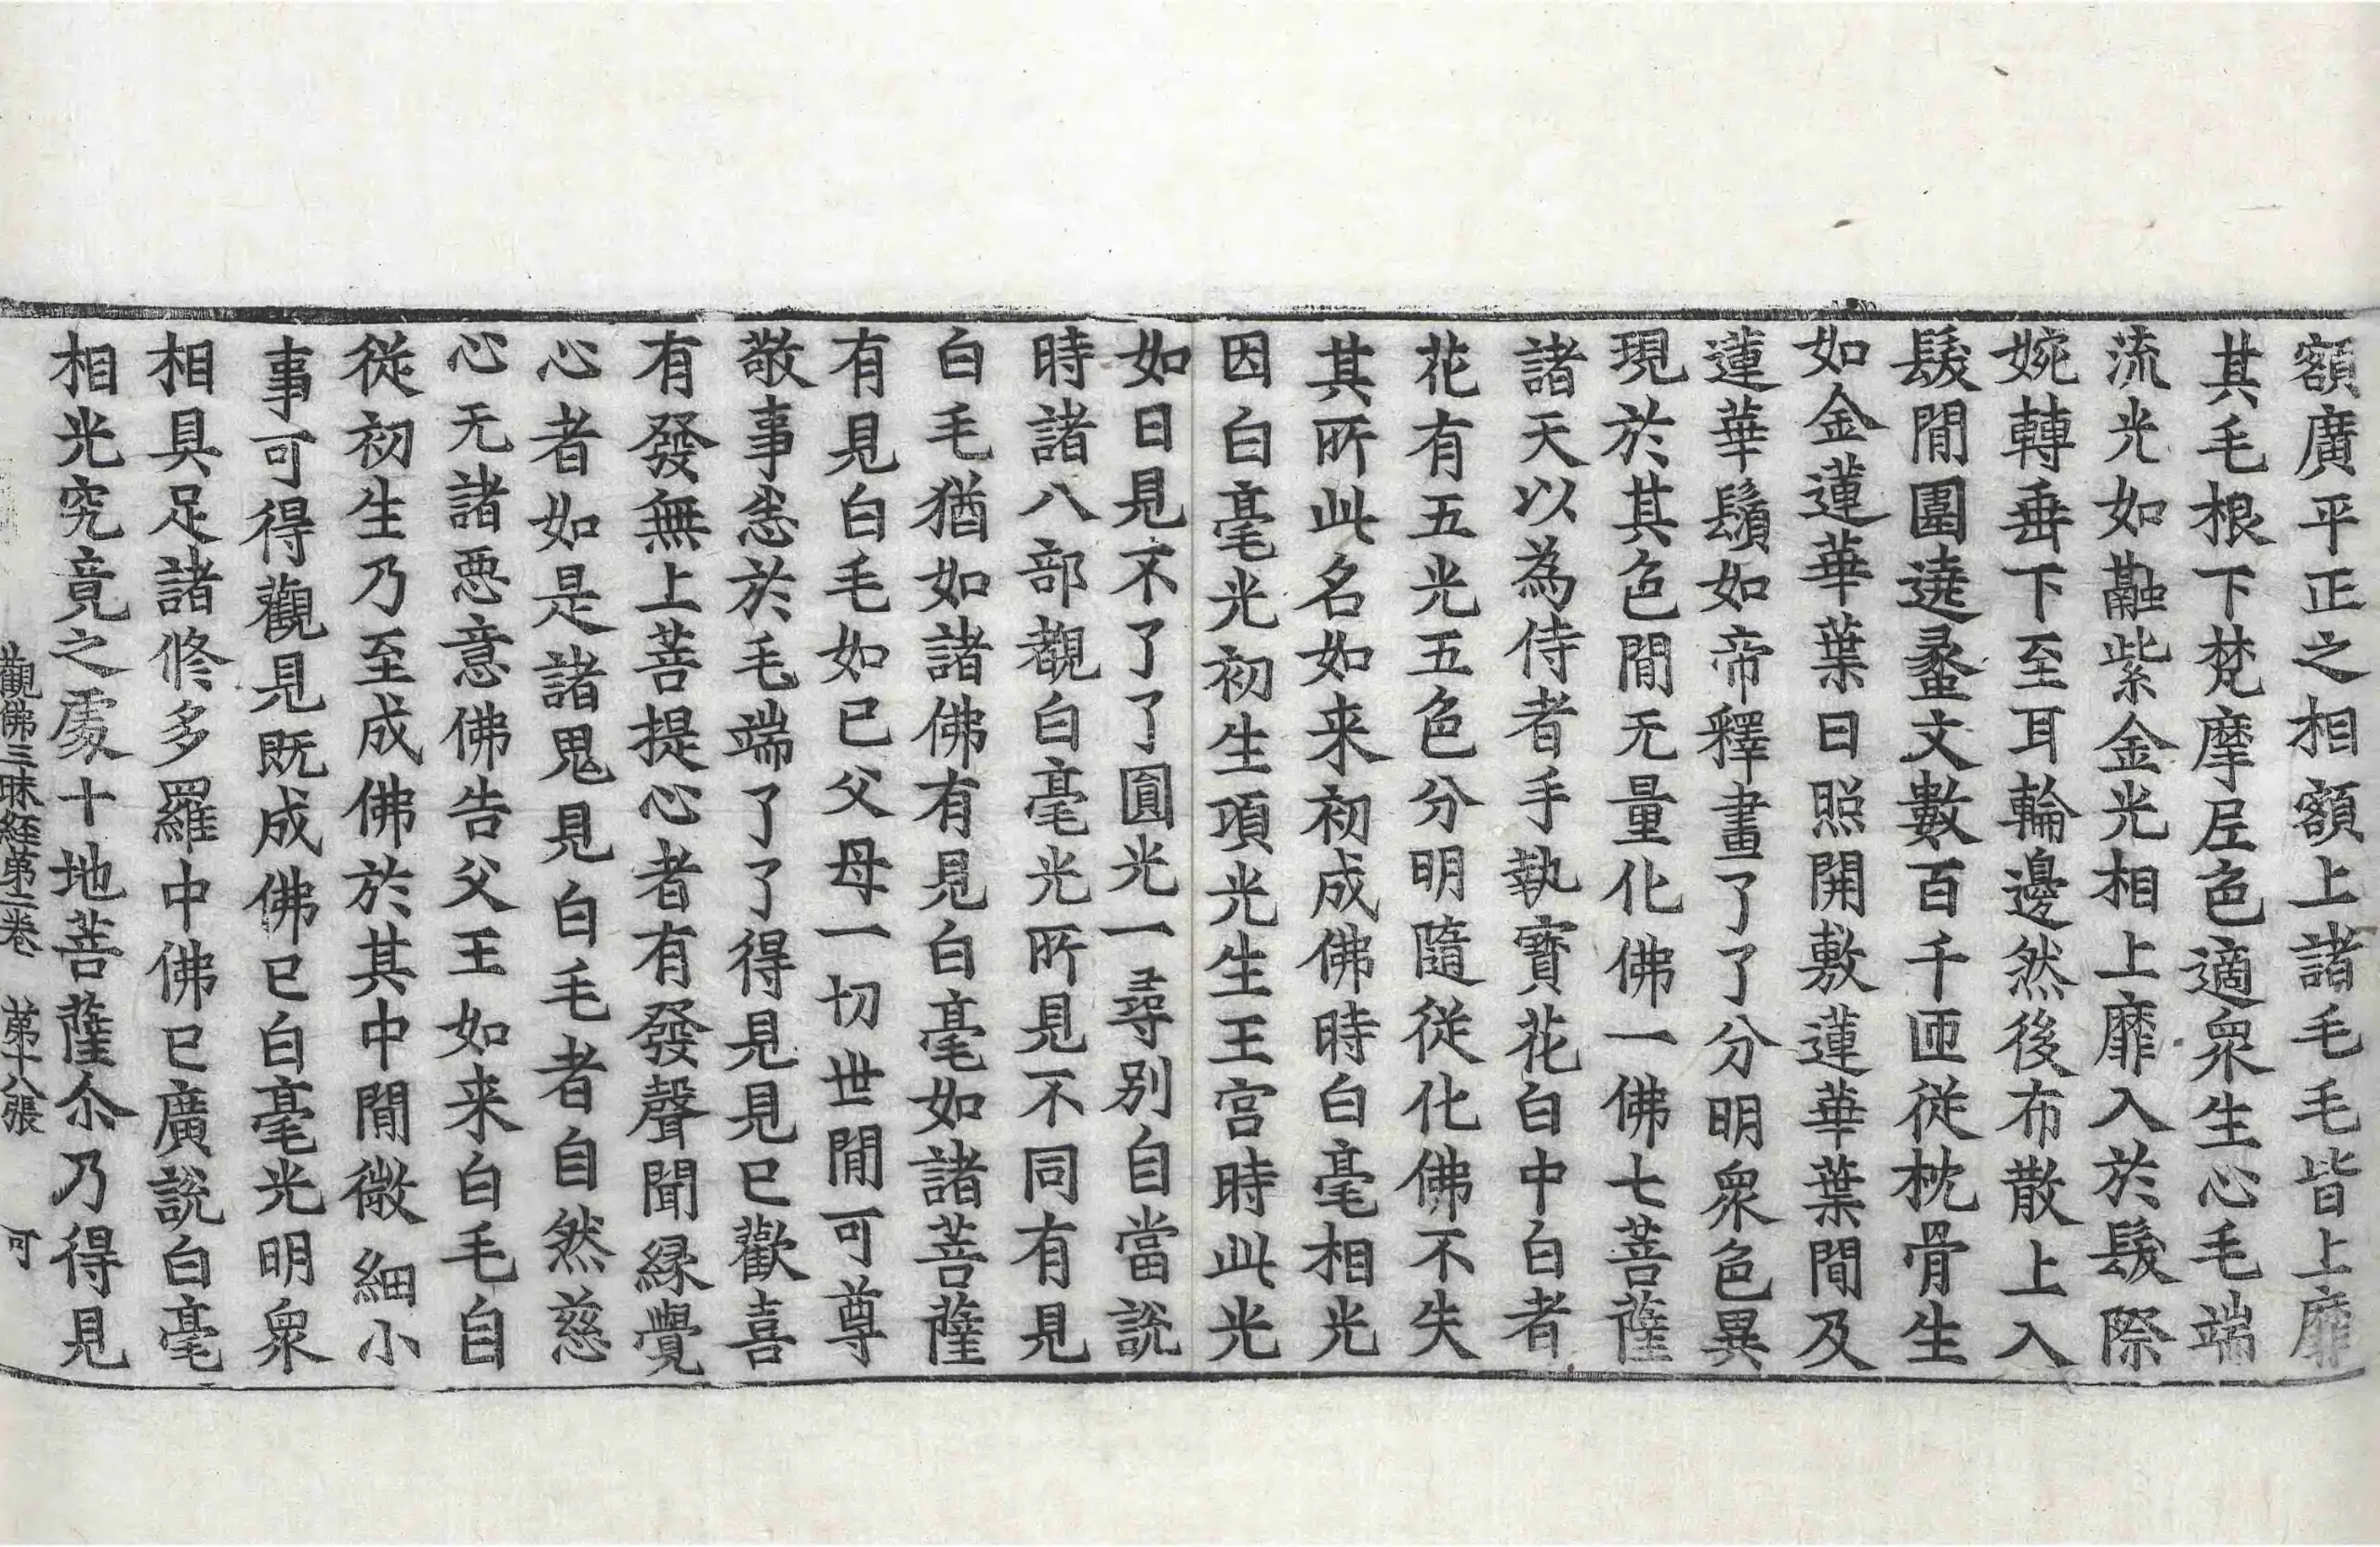 額廣平正之相額上諸毛毛皆上靡
其毛根下梵摩𡰱色適衆生心毛端
流光如融紫金光相上靡入於髮際
婉轉垂下至耳輪邊然後布散上入
髮閒圍遶蠡文數百千匝從枕骨生
如金蓮華葉日照開敷蓮華葉閒及
蓮華鬚如帝釋畫了了分明衆色異
現於其色閒无量化佛一佛七菩薩
諸天以為侍者手執寶花白中白者
花有五光五色分明隨從化佛不失
其所此名如来初成佛時白毫相光
因白毫光初生項光生王宮時此光
如日見不了了圓光一尋別自當說
時諸八部覩白毫光所見不同有見
白毛猶如諸佛有見白毫如諸菩薩
有見白毛如已父母一切世閒可尊
敬事悉於毛端了了得見見已歡喜
有發無上菩提心者有發聲聞緣覺
心者如是諸鬼見白毛者自然慈
心无諸惡意佛告父王如来白毛自
從初生乃至成佛於其中閒微細小
事可得觀見既成佛已白毫光明衆
相具足諸修多羅中佛已廣說白毫
相光究竟之處十地菩薩尒乃得見
觀佛三昧經第二卷 第十八張 可